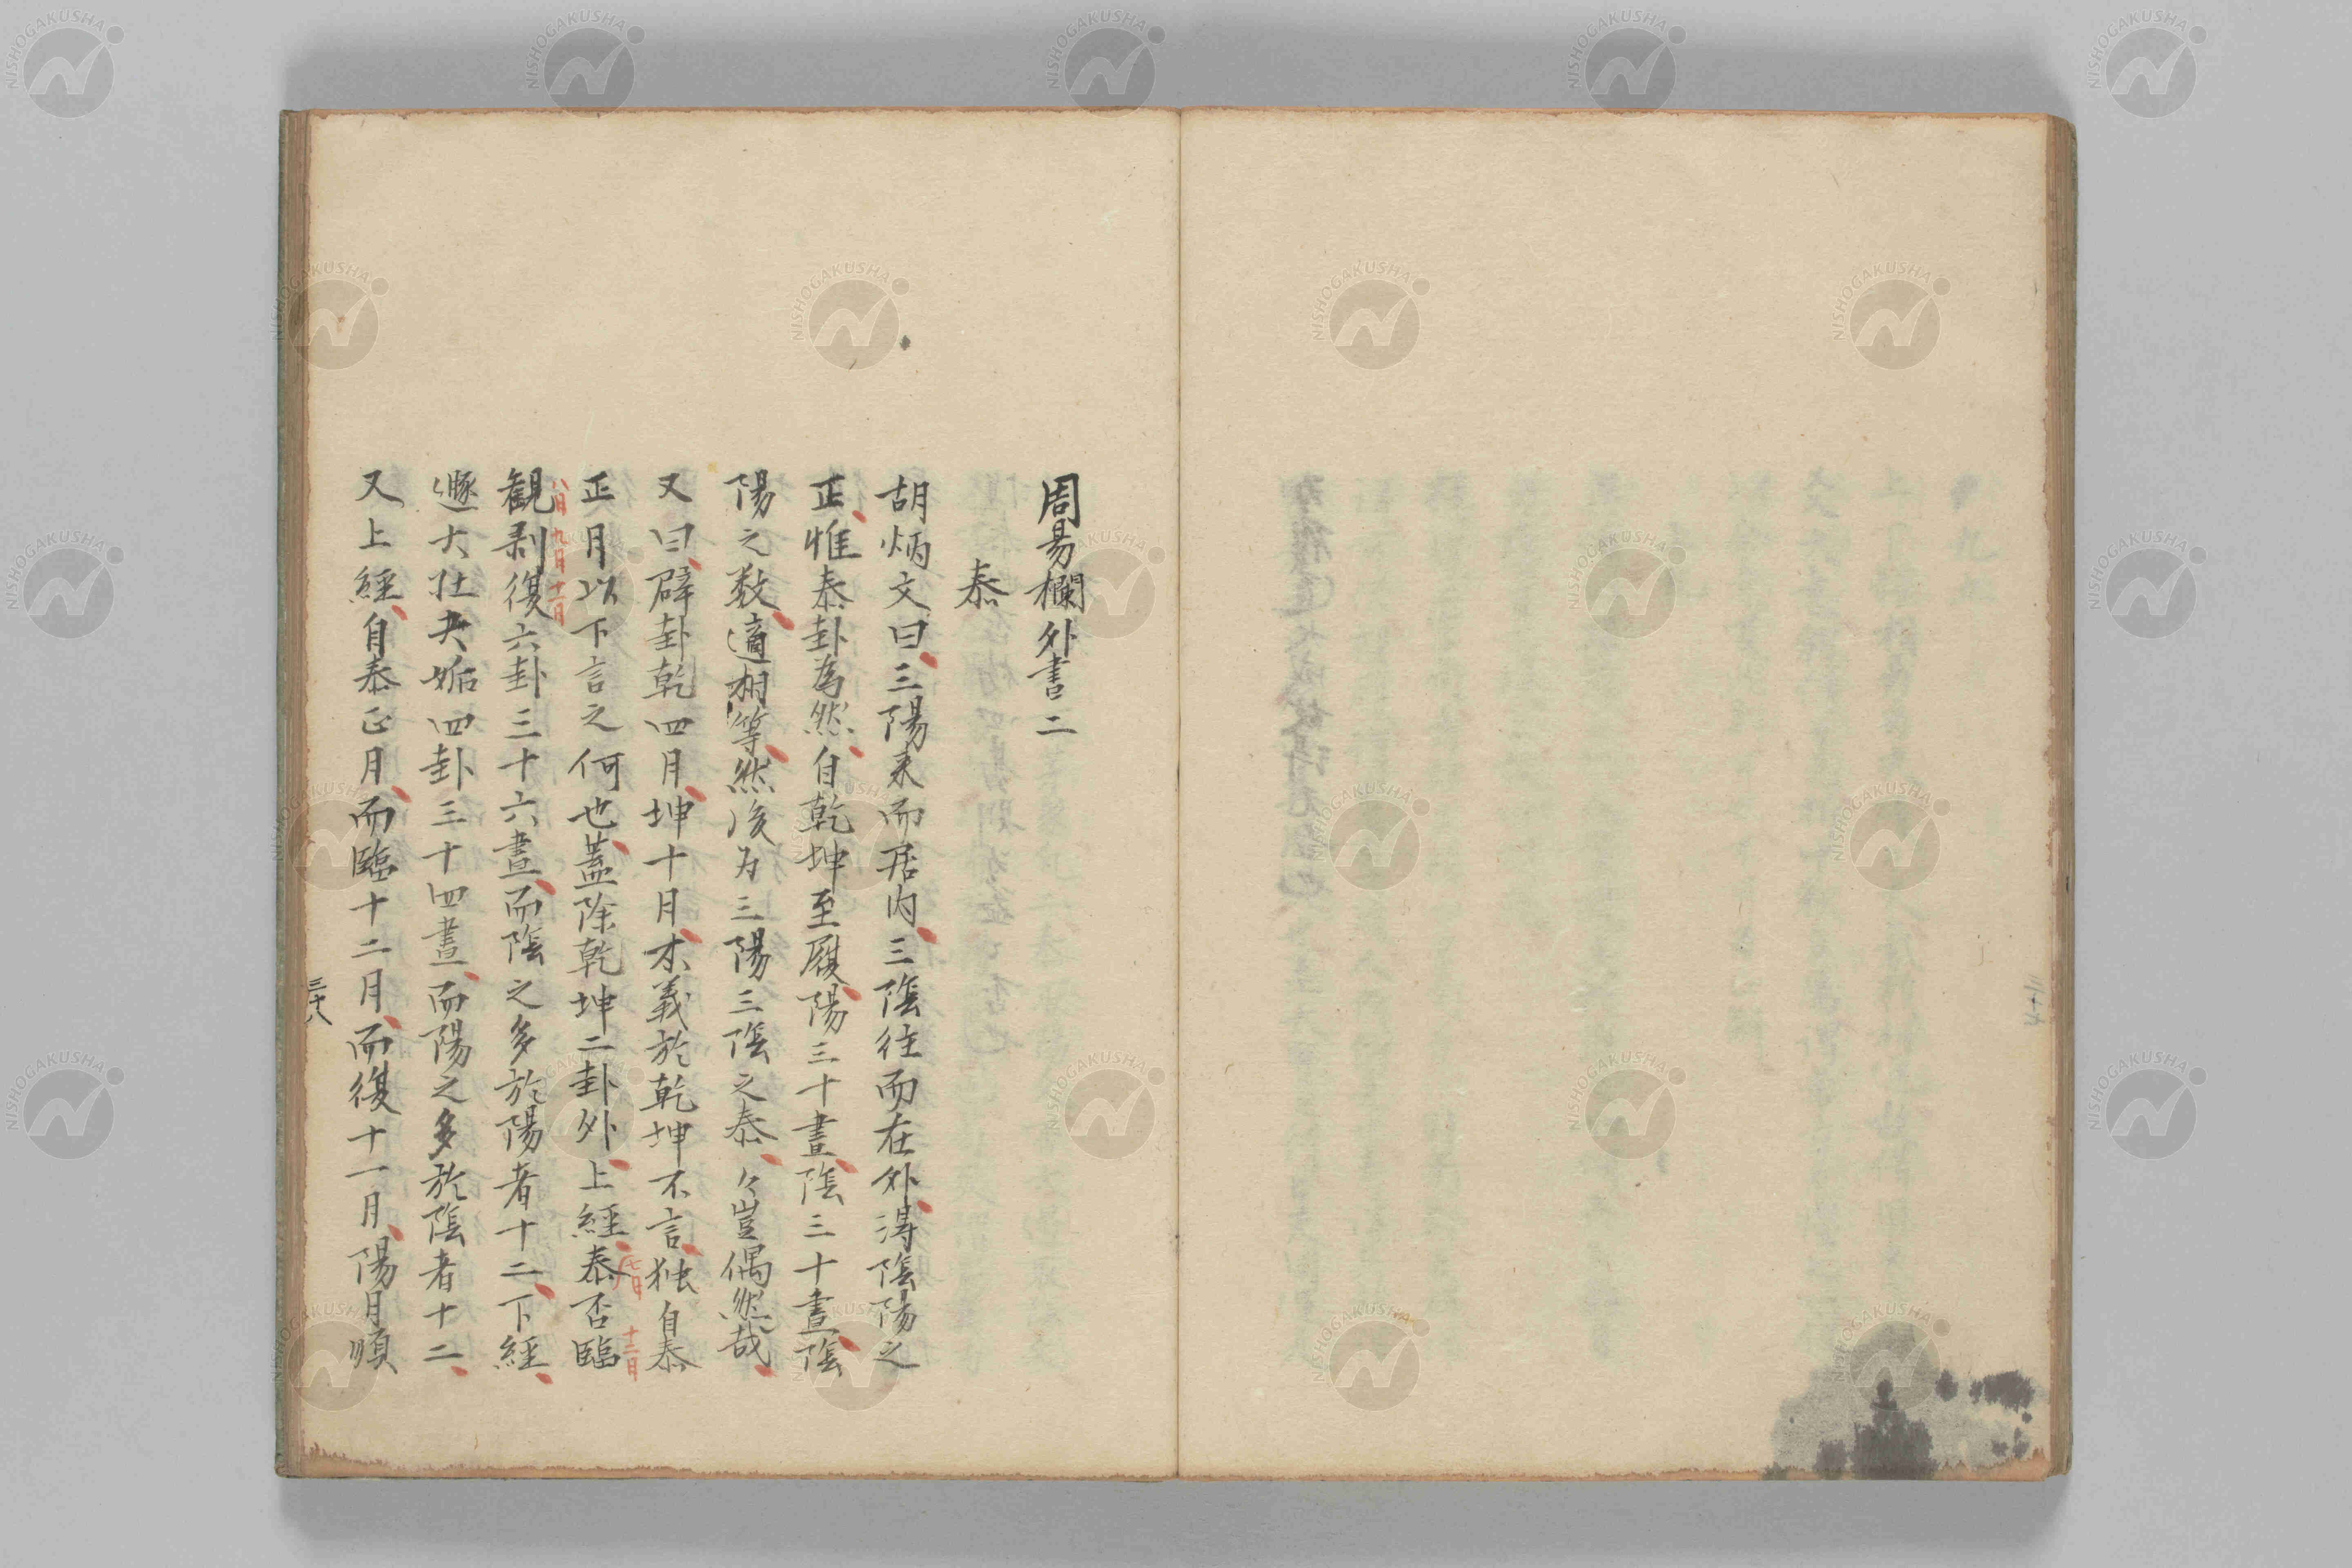 周易欄外書二
泰
胡炳文曰三陽来而居内三陰往而在外得陰陽之
正惟泰卦為然自乾坤至履陽三十畫陰三十畫陰
陽之数適相等然後为三陽三陰之泰々豈偶然哉
又曰辟卦乾四月坤十月本義於乾坤不言独自泰
正月以下言之何也蓋除乾坤二卦外上經泰否臨
七月
十二月
観剥復六卦三十六畫而陰之多於陽者十二下經
八月 九月 十一月
遯大壮夬姤四卦三十四畫而陽之多於陰者十二
又上經自泰正月而臨十二月而復十一月陽月順
三十八
三十七
NISHOGAKUSHA